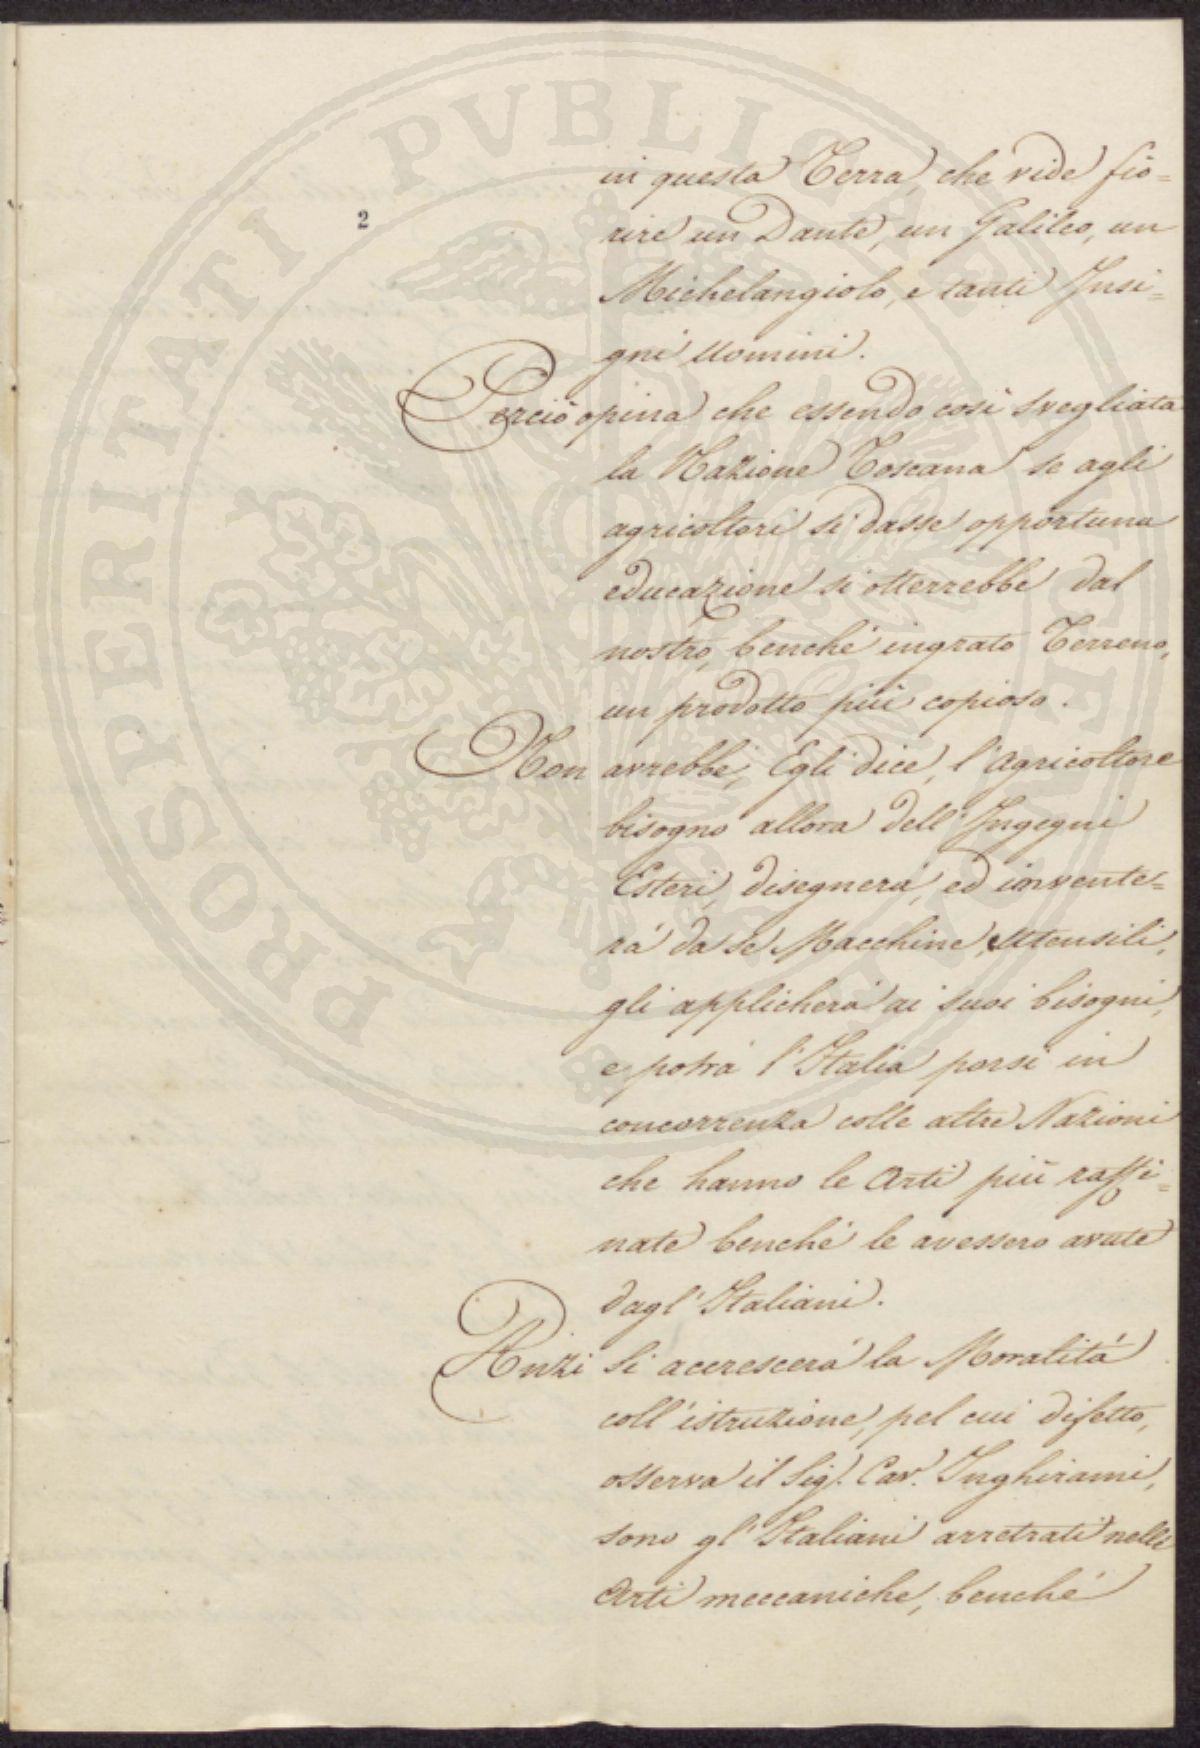 PROSPERITATI PVBLICAE
2
in questa Terra, che vide fio=
rire un Dante, un Galileo, un
Michelangiolo, e tanti Insi=
gni Uomini.
Perciò opina che essendo così svegliata
la Nazione Toscana se agli
agricoltori si dasse opportuna
educazione si otterrebbe dal
nostro, benchè ingrato Terreno,
un prodotto più copioso.
Non avrebbe, Egli dice, l'Agricoltore
bisogno allora dell'Ingegni
Esteri, disegnerà, ed invente=
rà da se Macchine, Utensili,
gli applicherà ai suoi bisogni,
e potrà l'Italia porsi in
concorrenza colle altre Nazioni
che hanno le Arti più raffi=
nate benchè le avessero avute
dagl'Italiani.
Anzi si accrescerà la Moralità
coll'istruzione, pel cui difetto,
osserva il Sig.r Cav.r Inghirami,
sono gl'Italiani arretrati nelle
Arti meccaniche, benchè